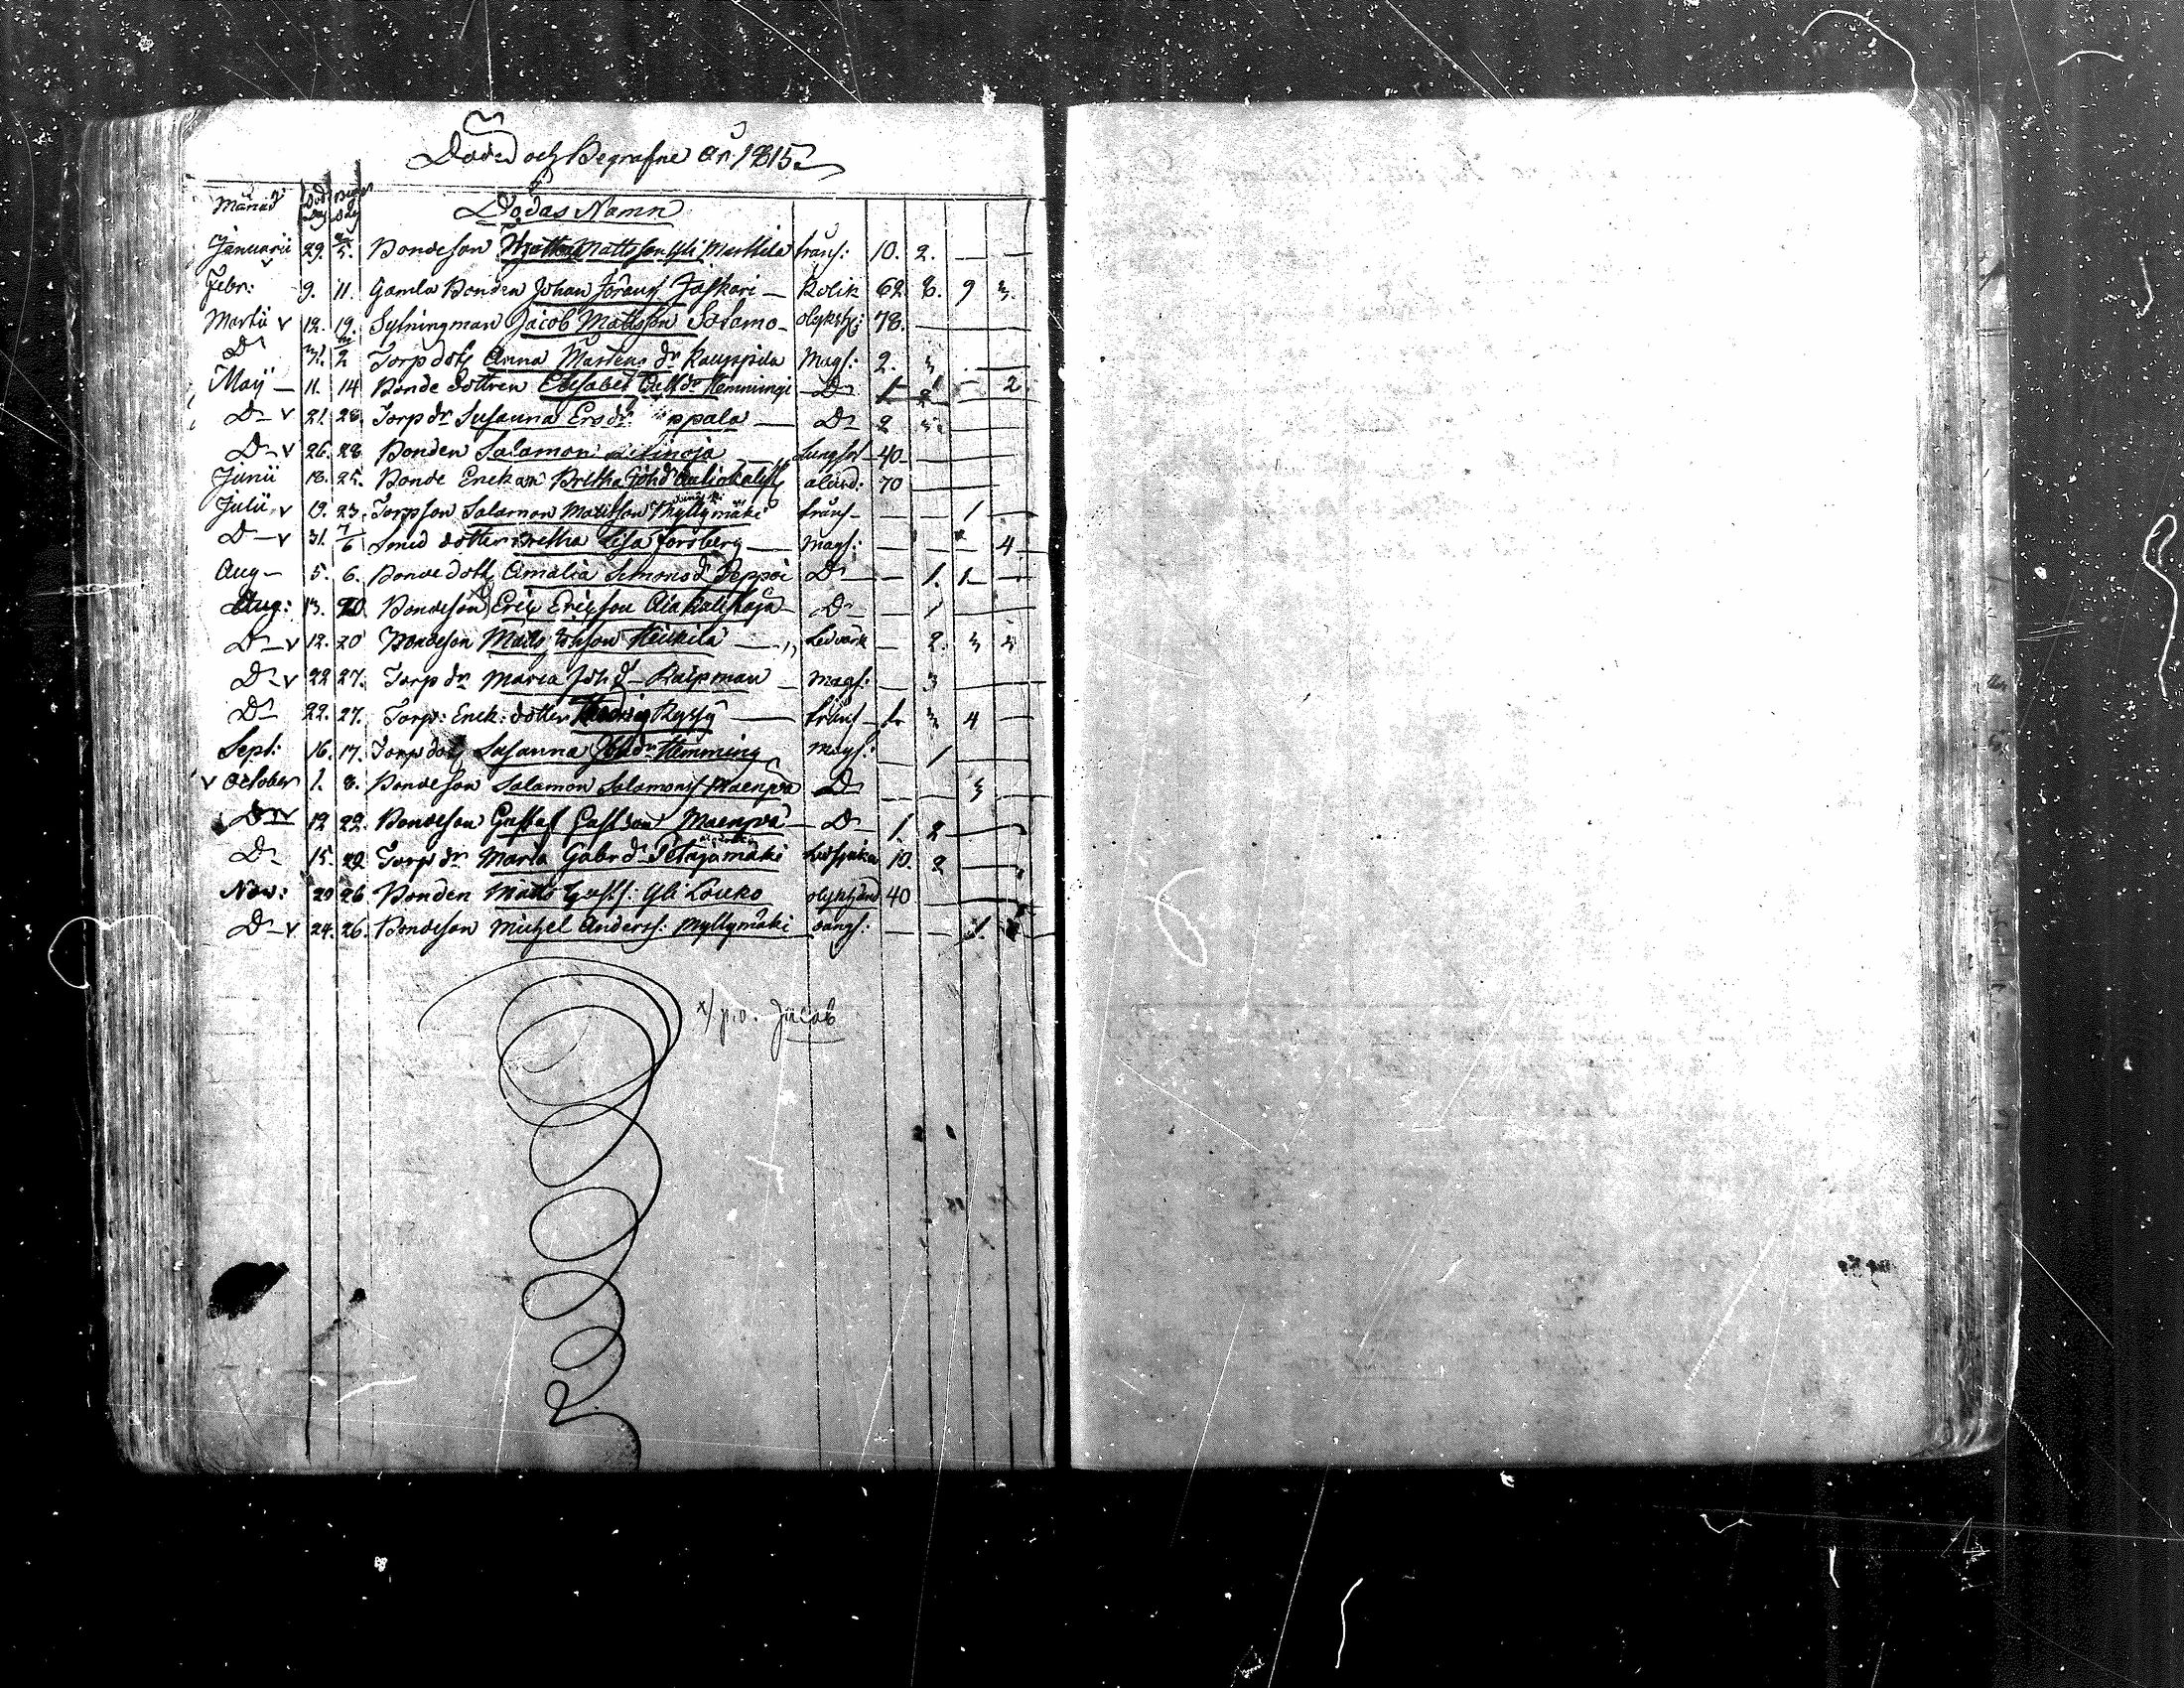 Döde och Begrafne År 1815
Månad Död Dag Begr. Dag Dödas Namn
Januarii 29. 5. Bondeson Matts Mattsson Yli Marttila bråns: 10. 2. — —
Febr: 9. 11. Gamla Bonden Johan Jörans: Jaskari — Kolik 62. 8. 9 3.
Martii v 12. 19. Sytningman Jacob Mattsson Satamo — olyksh: 78. — — —
D:o 31. 2 Torp dott Anna Mårtens dr Kauppila Mags: 2. 3 — —
Maij — 11. 14 Bonde dottren Elisabet dr Hemmingi — D:o 1 — 2
D:o v 21. 28. Torp dr Susanna Ersdr ppala — D:o 2 — —
D:o v 26. 28 Bonden Salamon — Lungsot 40 — — —
Junii 18. 25. Bonde Enckan Bretha Johdr ålderd: 70 — — —
Julii v 19. 23. Torpson Salamon Mattsson Myllymäki bråns — — 1 —
D:o v 31. 6 Smed dotter Bretha Lisa Forsberg — mags: — — — 4
Aug — 5. 6. Bonde dott Amalia Simonsd Seppoi D:o — 1. 1 —
Aug: 13. 20 Bondeson Eric Ericsson D:o — 1 — —
D:o v 12. 20 Bondeson Matts Heikkilä — Ledvärk — 2. 3 3
D:o v 22 27. Torp dr Maria Joh d Knipman — mags: — 3 — —
D:o 22. 27. Torp: Enck: dotter Hedvig Ryssy — bråns 1 3 4 —
Sept: 16. 17. Torp dott Susanna Johdr Hemming mags: — 1 — —
v October 1. 8. Bondeson Salamon Salamonss Maenpä D:o — — 3
D:o v 12 22. Bondeson Gustaf Gustson Maenpä — D:o 1. 2 — —
D:o 15. 22 Torp dr Maria Gabr dr Petäjämäki 10. 2 — —
Nov: 20 26 Bonden Matts Gusts: Yli Louko olykshänd 40 — — —
D:o v 24. 26. Bondeson Michel Anderss: Myllymäki — — 1.
x/ p.o. Jacob